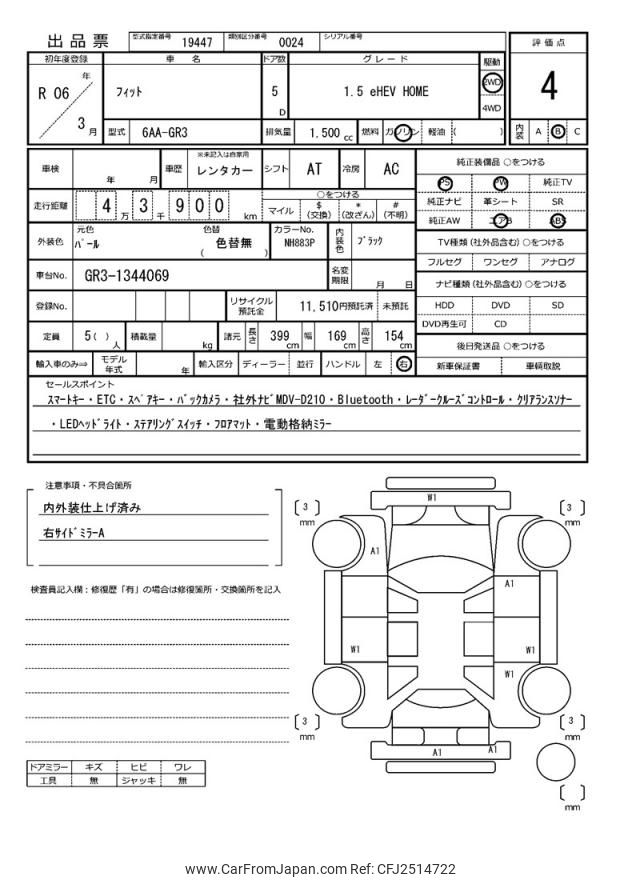 出品票 型式指定番号 19447 類別区分番号 0024 シリアル番号
評価点
4
内装 A B C
初年度登録 車名 ドア数 グレード 駆動
R 06 年 3 月
フィット
5 D
1.5 eHEV HOME
2WD
4WD
型式 6AA-GR3 排気量 1.500 cc 燃料 ガソリン 軽油 ( )
車検 年 月 車歴 ※未記入は自家用 レンタカー シフト AT 冷房 AC
走行距離 4 万 3 千 9 0 0 km
○をつける
マイル $(交換) *(改ざん) #(不明)
外装色 元色 パール 色替 色替無 ( ) カラーNo. NH883P 内装色 ブラック
車台No. GR3-1344069 名変期限 月 日
登録No. リサイクル預託金 11,510円預託済 未預託
定員 5( )人 積載量 kg 諸元 長さ 399 cm 幅 169 cm 高さ 154 cm
輸入車のみ⇒ モデル年式 年 輸入区分 ディーラー 並行 ハンドル 左 右
純正装備品 ○をつける
PS PW 純正TV
純正ナビ 革シート SR
純正AW エアB ABS
TV種類(社外品含む)○をつける
フルセグ ワンセグ アナログ
ナビ種類(社外品含む)○をつける
HDD DVD SD
DVD再生可 CD
後日発送品 ○をつける
新車保証書 車輌取説
セールスポイント
スマートキー・ETC・スペアキー・バックカメラ・社外ナビMDV-D210・Bluetooth・レーダークルーズコントロール・クリアランスソナー
・LEDヘッドライト・ステアリングスイッチ・フロアマット・電動格納ミラー
注意事項・不具合箇所
内外装仕上げ済み
右サイドミラーA
検査員記入欄:修復歴「有」の場合は修復箇所・交換箇所を記入
ドアミラー キズ ヒビ ワレ
工具 無 ジャッキ 無
W1
[3] mm
[3] mm
A1
A1
W1
W1
W1
[3] mm
[3] mm
A1
A1
[ ] mm
www.CarFromJapan.com Ref: CFJ2514722